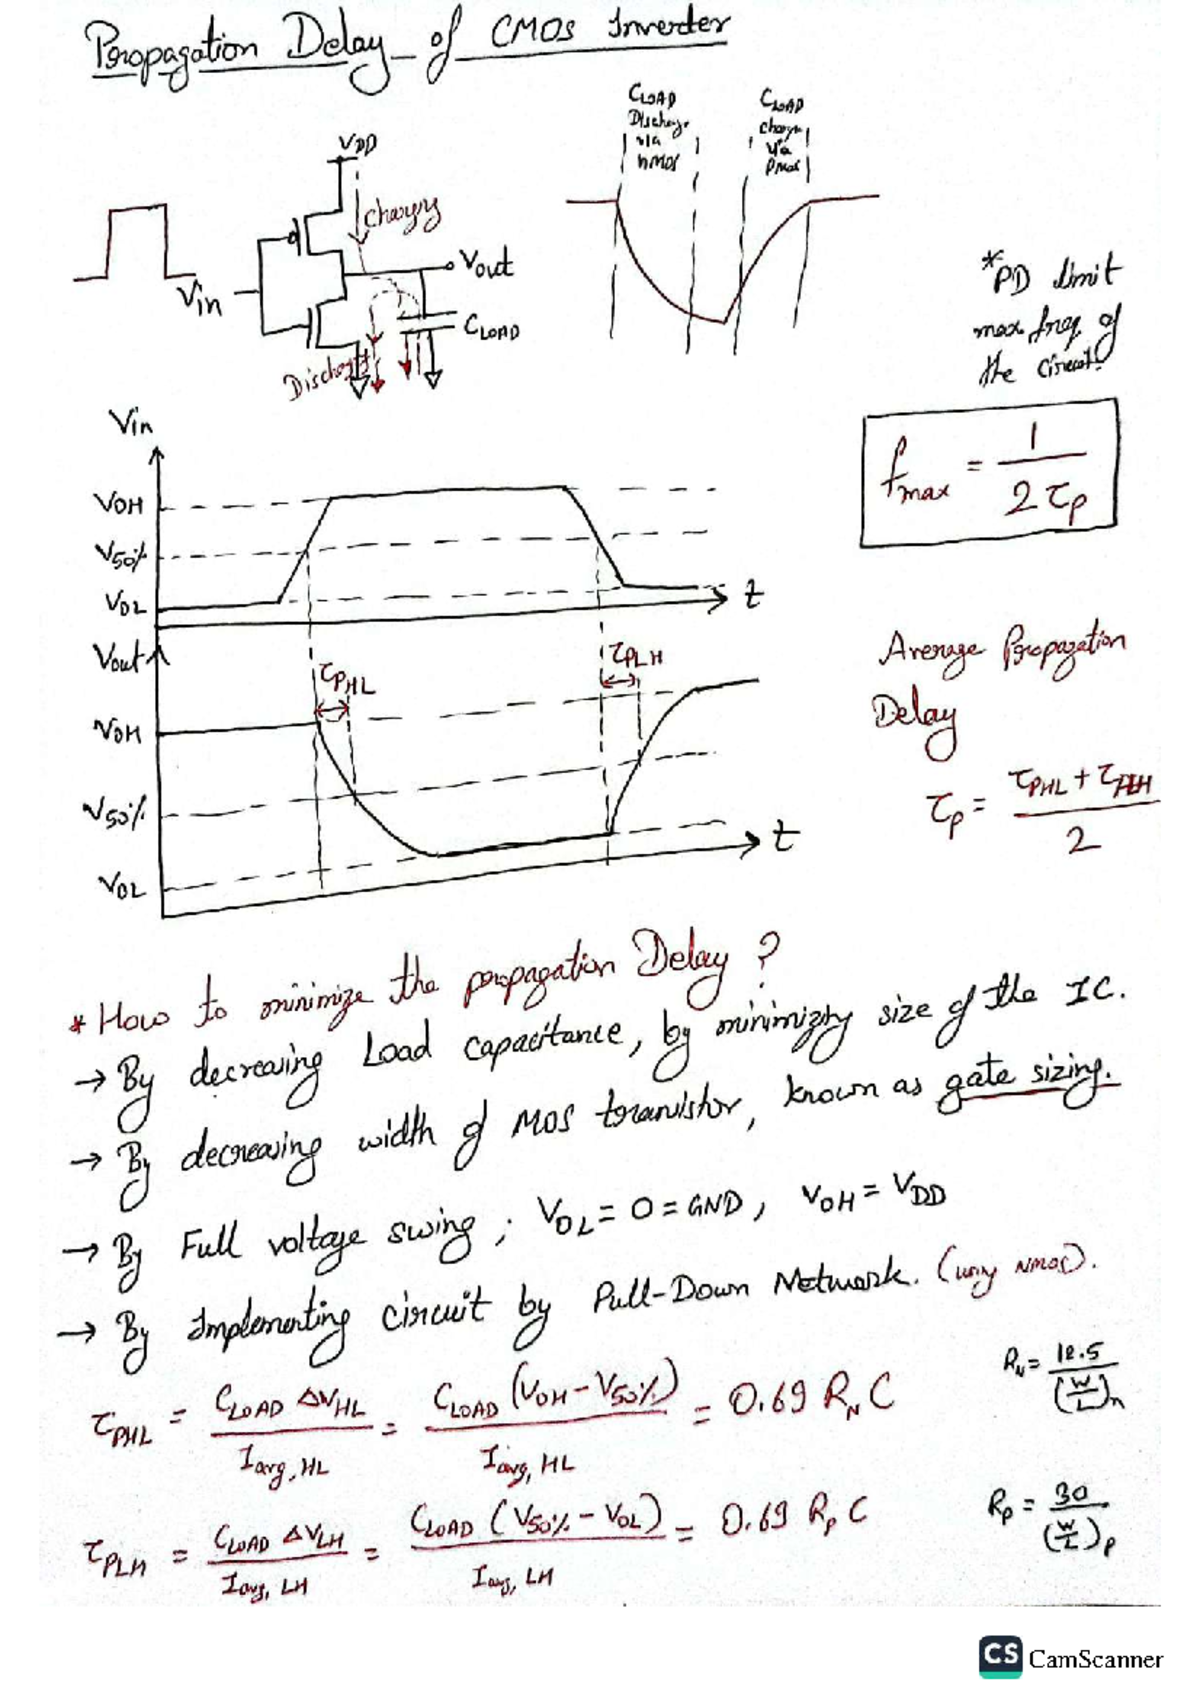 Propagation Delay of CMOS Inverter
CLOAD
Discharge
via
nmos
CLOAD
charge
via
Pmos
VDD
charging
Vin
Vout
CLOAD
Discharge
*PD limit
max freq. of
the circuit.
fmax = 1 / 2τp
Vin
VOH
V50%
VOL
t
Vout
τPHL
τPLH
VOH
V50%
VOL
t
Average Propagation
Delay
τp = (τPHL + τPLH) / 2
* How to minimize the propagation Delay ?
→ By decreasing Load capacitance, by minimizing size of the IC.
→ By decreasing width of MOS transistor, known as gate sizing.
→ By Full voltage swing ; VOL = 0 = GND, VOH = VDD
→ By Implementing circuit by Pull-Down Network. (using NMOS).
τPHL = CLOAD ΔVHL / Iavg, HL = CLOAD (VOH - V50%) / Iavg, HL = 0.69 RN C
RN = 12.5 / (W/L)n
τPLH = CLOAD ΔVLH / Iavg, LH = CLOAD (V50% - VOL) / Iavg, LH = 0.69 Rp C
Rp = 30 / (W/L)p
CS CamScanner